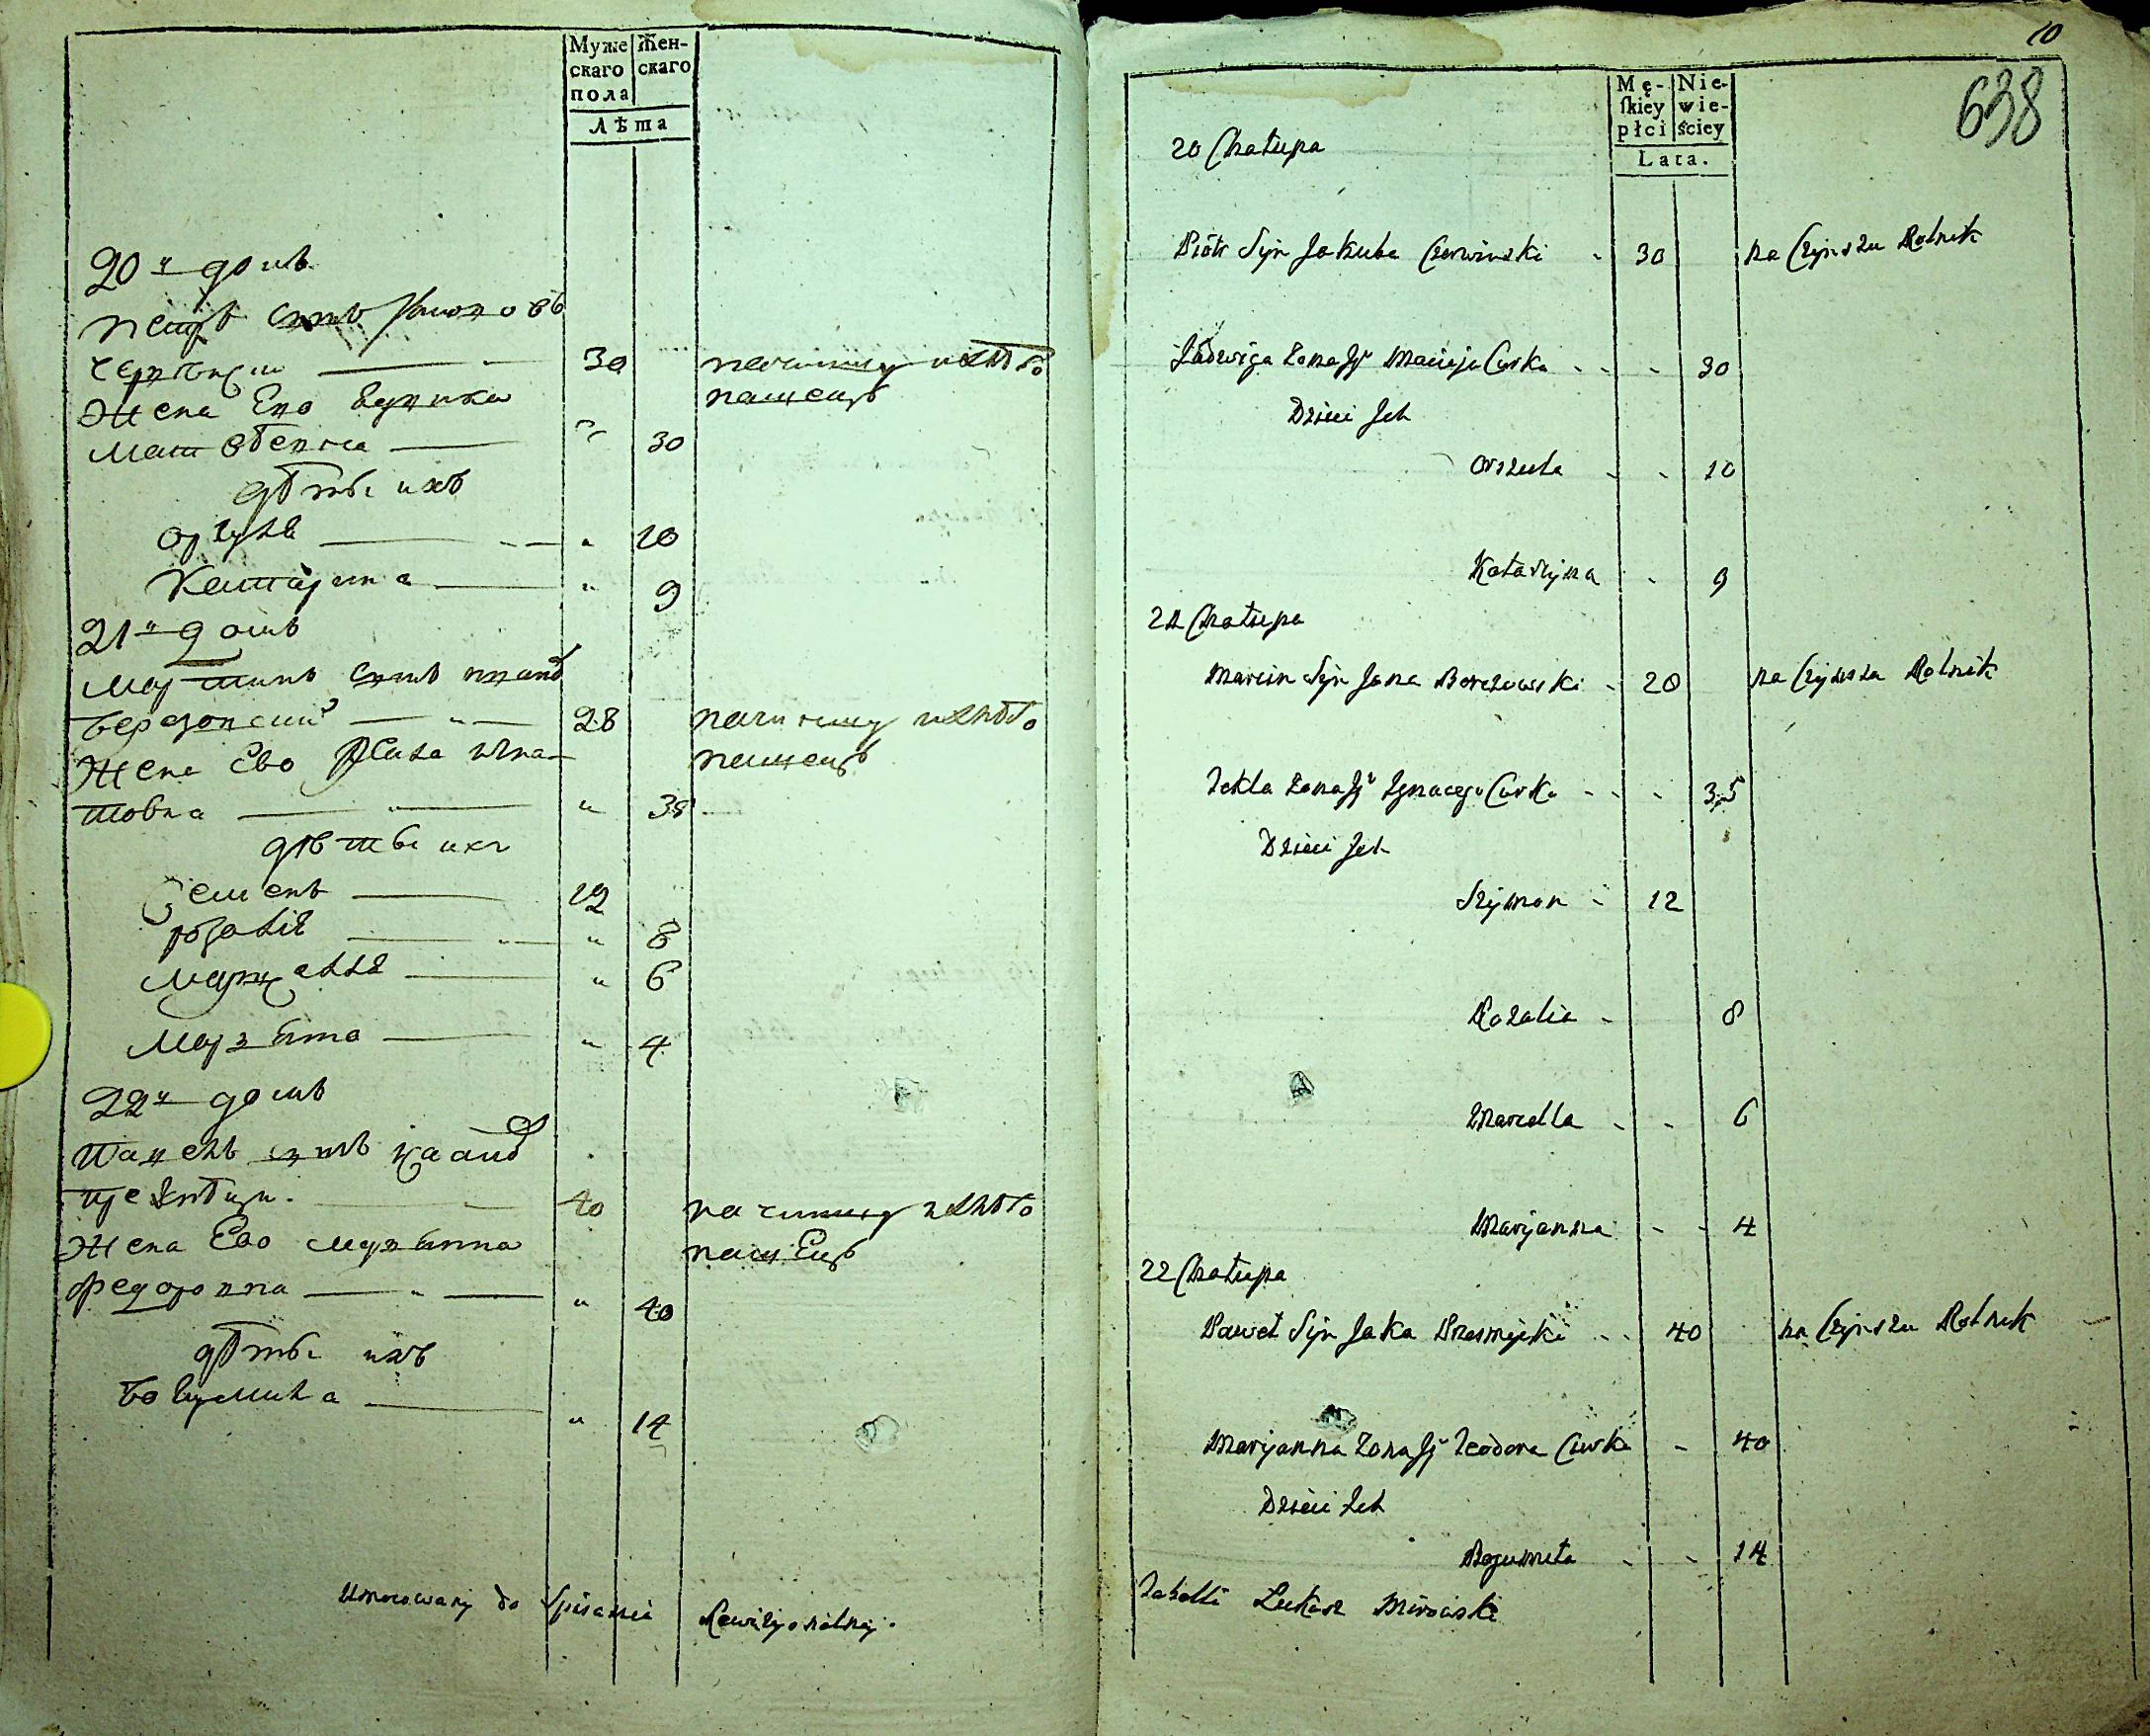 Муже
скаго
пола
Жен-
скаго
Лѣта
20й домъ
Петръ сынъ
30
Жена Ево
Матвеевна 30
дѣти ихъ
Оршуля 10
Катарина 9
21й домъ
Мартинъ сынъ
28
Жена Ево Текла Игна-
товна 35
дѣти ихъ
Семенъ 12
Розалия 8
Марцелля 6
Марянна 4
22й домъ
Павелъ сынъ
40
Жена Ево Марянна
Федоровна 40
дѣти ихъ
Богумила 14
Umocowany do Spisania Rewizyonalney
10
638
Mę-
skiey
płci
Nie-
wie-
ściey
Lata.
20 Chałupa
Piotr Syn Jakuba Czerwinski - 30 na Czynszu Rolnik
Jadwiga Zona Jg° Macieja Curka - - - 30
Dzieci Ich
Orszula - - 10
Katarzyna - - 9
21 Chałupa
Marcin Syn Jana Borezowski - 20 na Czynszu Rolnik
Tekla Zona Jg° Ignacego Curka - - - 35
Dzieci Ich
Szymon - 12
Rozalia - 8
Marcella - - 6
Maryanna - - 4
22 Chałupa
Paweł Syn 40 na Czynszu Rolnik
Maryanna Zona Jg° Teodora Curka - 40
Dzieci Ich
Bogumiła - - 14
Tabelli Łukasz Mirowski